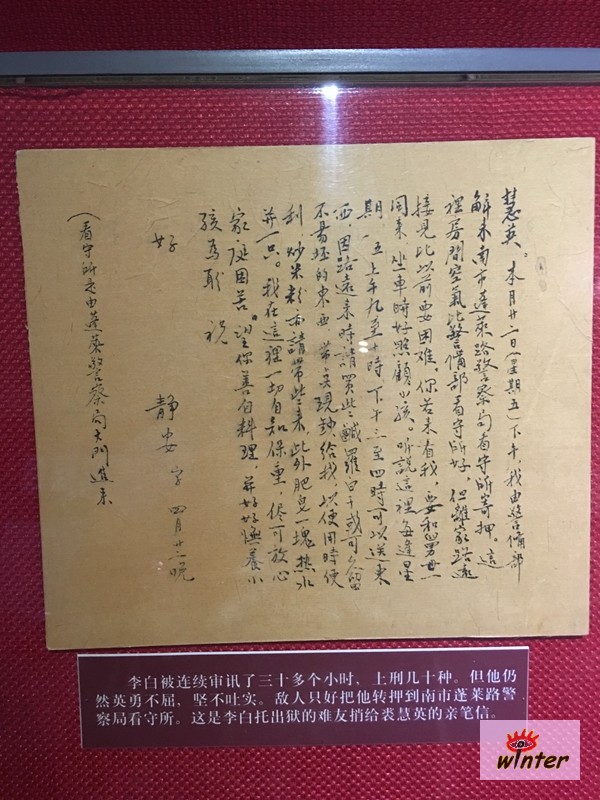 慧英：本月廿二日（星期五）下午，我由警備部
解来南市蓬萊路警察局看守所寄押。這
裡房間空氣比警備部看守所好，但離家路遠
接見比以前要困难。你若来看我，要和舅母一
同来，坐車時好照顧小孩。听説這裡每逢星
期一、五上午九至十時，下午三至四時可以送東
西，因路遠来時請買些鹹羅白干或可久留
不易坯的東西，带点現鈔给我，以便用時便
利，炒米粉亦請带些来，此外肥皂一塊，热水
并一只。我在這裡一切自知保重，侭可放心
家庭困苦。望你善自料理，并好好撫養小
孩为盼 祝
好
静安字 四月廿二晚
（看守所是由蓬萊警察局大門進来
李白被连续审讯了三十多个小时，上刑几十种。但他仍
然英勇不屈，坚不吐实。敌人只好把他转押到南市蓬莱路警
察局看守所。这是李白托出狱的难友捎给裘慧英的亲笔信。
winter